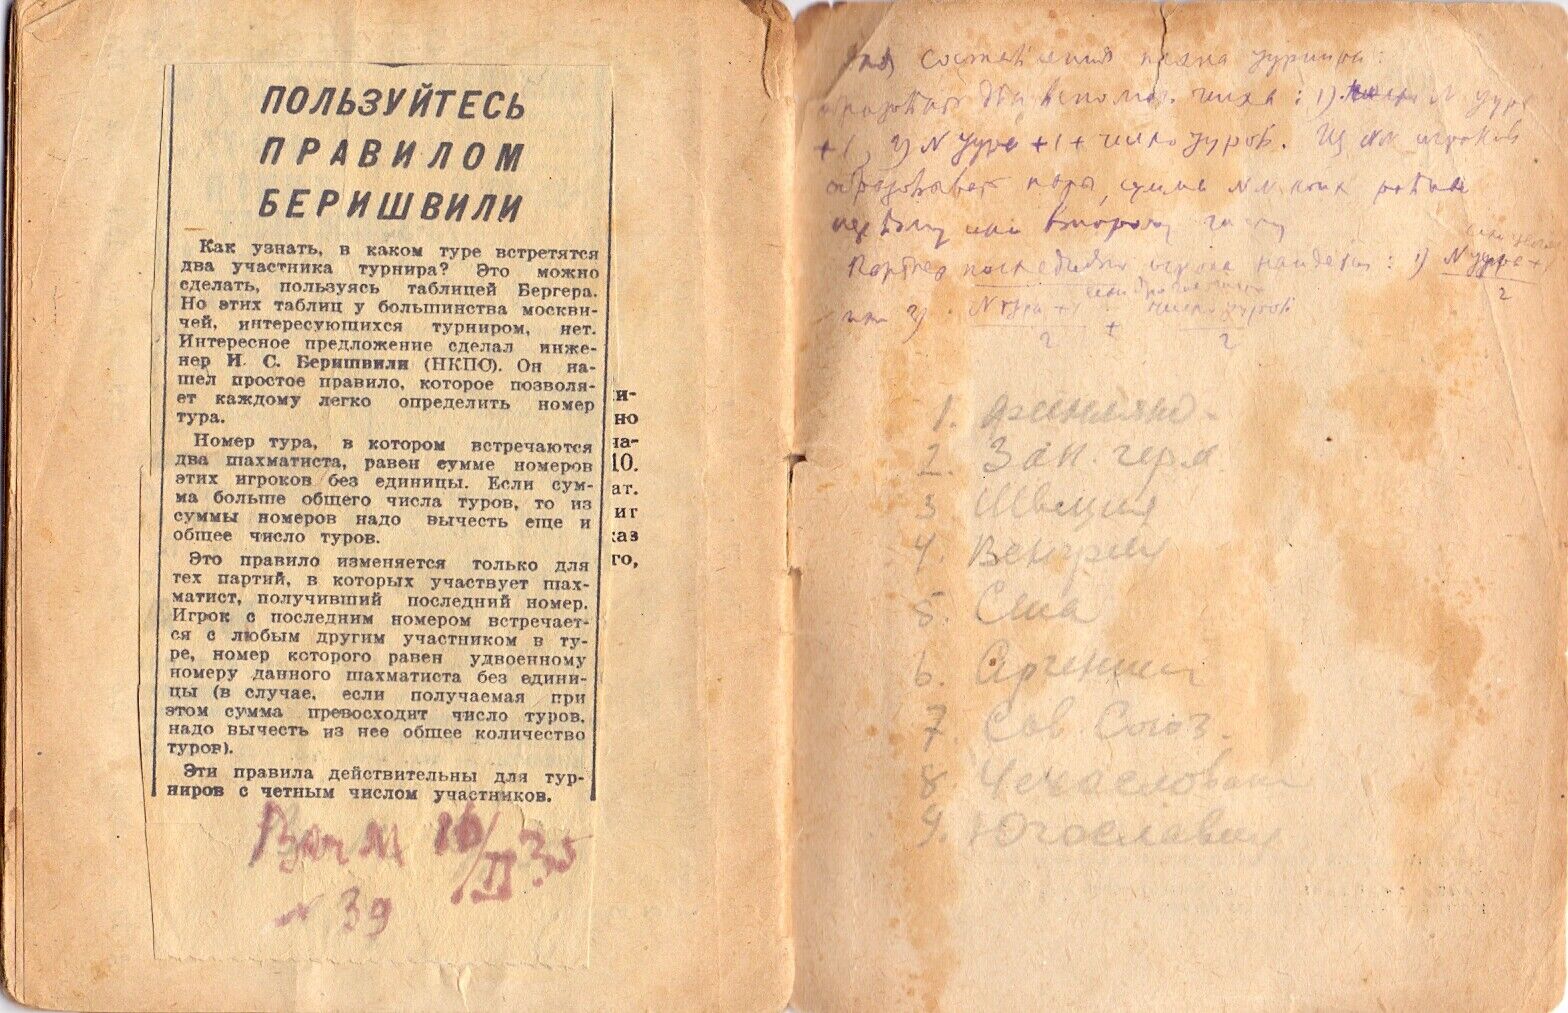 ПОЛЬЗУЙТЕСЬ
ПРАВИЛОМ
БЕРИШВИЛИ
Как узнать, в каком туре встретятся
два участника турнира? Это можно
сделать, пользуясь таблицей Бергера.
Но этих таблиц у большинства москви-
чей, интересующихся турниром, нет.
Интересное предложение сделал инже-
нер И. С. Беришвили (НКПС). Он на-
шел простое правило, которое позволя-
ет каждому легко определить номер
тура.
Номер тура, в котором встречаются
два шахматиста, равен сумме номеров
этих игроков без единицы. Если сум-
ма больше общего числа туров, то из
суммы номеров надо вычесть еще и
общее число туров.
Это правило изменяется только для
тех партий, в которых участвует шах-
матист, получивший последний номер.
Игрок с последним номером встречает-
ся с любым другим участником в ту-
ре, номер которого равен удвоенному
номеру данного шахматиста без едини-
цы (в случае, если получаемая при
этом сумма превосходит число туров,
надо вычесть из нее общее количество
туров).
Эти правила действительны для тур-
ниров с четным числом участников.
Веч М 16/II 35
№ 39
и-
но
на-
10.
ат.
иг
каз
го,
составления плана турнира:
два вспомог. числа: 1) N тура
+1, 2) N тура +1+ число туров. Из NN игроков
образовывают пары, сумма NN коих равна
первому или второму числу
Партнер последнего игрока найдется: 1) N тура+1
2
или 2) N тура +1 число туров
2 + 2
1. Финлянд.
2. Зап. герм
3 Швеция
4. Венгрия
5. Сша
6. Аргентин
7. Сов. Союз.
8 Чехословаки
9. Югославия